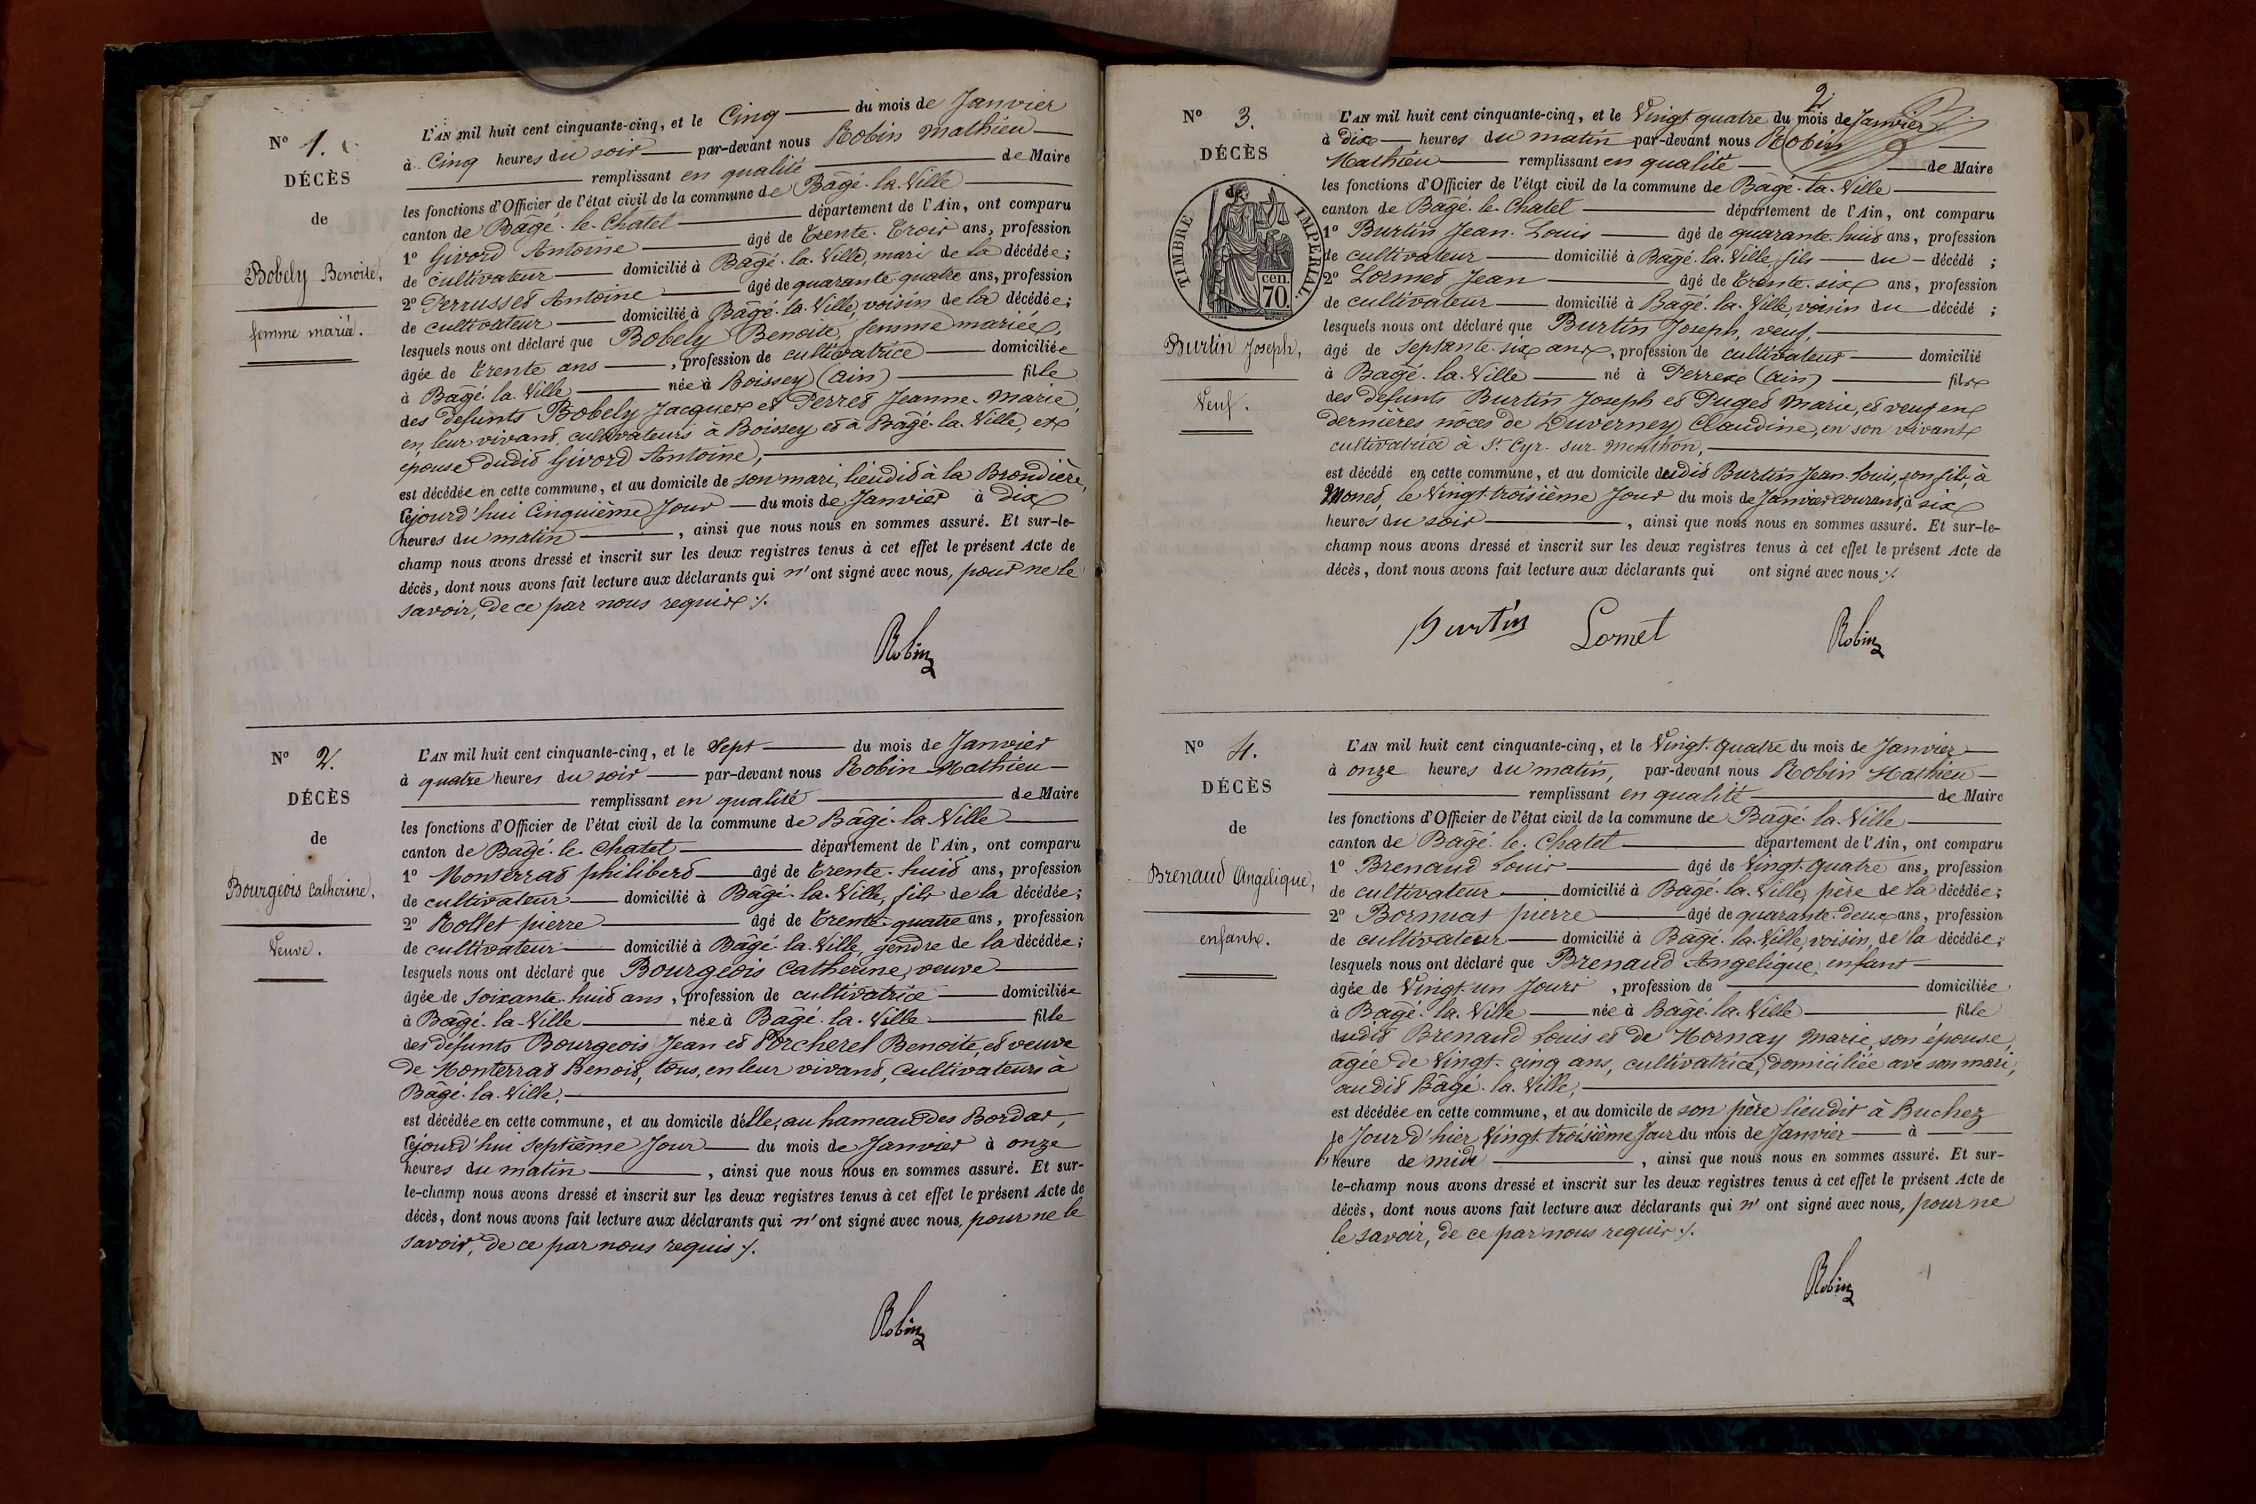 Nº 1.
DÉCÈS
de
Bobely Benoite,
femme mariée.
L'AN mil huit cent cinquante-cinq, et le Cinq du mois de Janvier
à Cinq heures du soir par-devant nous Robin Mathieu
remplissant en qualité de Maire
les fonctions d'Officier de l'état civil de la commune de Bâgé-la-Ville
canton de Bâgé-le-Chatel département de l'Ain, ont comparu
1º Givord Antoine âgé de Trente-Trois ans, profession
de cultivateur domicilié à Bâgé-la-Ville, mari de la décédée;
2º Perrusset Antoine âgé de quarante-quatre ans, profession
de cultivateur domicilié à Bâgé-la-Ville, voisin de la décédée;
lesquels nous ont déclaré que Bobely Benoite, femme mariée,
âgée de Trente ans, profession de cultivatrice domiciliée
à Bâgé-la-Ville née à Boissey (Ain) fille
des défunts Bobely Jacques et Perret Jeanne-Marie,
en leur vivant, cultivateurs à Boissey et à Bâgé-la-Ville, et
épouse dudit Givord Antoine,
est décédée en cette commune, et au domicile de son mari, lieudit à la Brondière,
cejourd'hui Cinquième Jour du mois de Janvier à dix
heures du matin, ainsi que nous nous en sommes assuré. Et sur-le-
champ nous avons dressé et inscrit sur les deux registres tenus à cet effet le présent Acte de
décès, dont nous avons fait lecture aux déclarants qui n'ont signé avec nous, pour ne le
savoir, de ce par nous requis ./.
Robin
Nº 2.
DÉCÈS
de
Bourgeois Catherine,
Veuve.
L'AN mil huit cent cinquante-cinq, et le Sept du mois de Janvier
à quatre heures du soir par-devant nous Robin Mathieu
remplissant en qualité de Maire
les fonctions d'Officier de l'état civil de la commune de Bâgé-la-Ville
canton de Bâgé-le-Chatel département de l'Ain, ont comparu
1º Monterrat philibert âgé de Trente-huit ans, profession
de cultivateur domicilié à Bâgé-la-Ville, fils de la décédée;
2º Rollet pierre âgé de Trente-quatre ans, profession
de cultivateur domicilié à Bâgé-la-Ville, gendre de la décédée;
lesquels nous ont déclaré que Bourgeois Catherine, veuve
âgée de soixante-huit ans, profession de cultivatrice domiciliée
à Bâgé-la-Ville née à Bâgé-la-Ville fille
des défunts Bourgeois Jean et Porcherel Benoite, et veuve
de Monterrat Benoit, tous, en leur vivant, cultivateurs à
Bâgé-la-Ville,
est décédée en cette commune, et au domicile d'elle, au hameau des Bordat,
cejourd'hui septième Jour du mois de Janvier à onze
heures du matin, ainsi que nous nous en sommes assuré. Et sur-
le-champ nous avons dressé et inscrit sur les deux registres tenus à cet effet le présent Acte de
décès, dont nous avons fait lecture aux déclarants qui n'ont signé avec nous, pour ne le
savoir, de ce par nous requis ./.
Robin
2
Nº 3.
DÉCÈS
de
TIMBRE IMPERIAL.
70 cen.
Burtin Joseph,
Veuf.
L'AN mil huit cent cinquante-cinq, et le Vingt quatre du mois de Janvier
à dix heures du matin par-devant nous Robin
Mathieu remplissant en qualité de Maire
les fonctions d'Officier de l'état civil de la commune de Bâgé-la-Ville
canton de Bâgé-le-Chatel département de l'Ain, ont comparu
1º Burtin Jean-Louis âgé de quarante-huit ans, profession
de cultivateur domicilié à Bâgé-la-Ville, fils du décédé;
2º Lormet Jean âgé de Trente-six ans, profession
de cultivateur domicilié à Bâgé-la-Ville, voisin du décédé;
lesquels nous ont déclaré que Burtin Joseph, veuf,
âgé de septante-six ans, profession de cultivateur domicilié
à Bâgé-la-Ville né à Perrex (Ain) fils
des défunts Burtin Joseph et Puget Marie, et veuf en
dernières nôces de Duverney Claudine, en son vivant
cultivatrice à St Cyr-sur-Menthon,
est décédé en cette commune, et au domicile dudit Burtin Jean-Louis, son fils, à
Monet, le Vingt-troisième Jour du mois de Janvier courant, à six
heures du soir, ainsi que nous nous en sommes assuré. Et sur-le-
champ nous avons dressé et inscrit sur les deux registres tenus à cet effet le présent Acte de
décès, dont nous avons fait lecture aux déclarants qui ont signé avec nous ./.
Burtin Lormet Robin
Nº 4.
DÉCÈS
de
Brenaud Angelique,
enfant.
L'AN mil huit cent cinquante-cinq, et le Vingt-quatre du mois de Janvier
à onze heures du matin, par-devant nous Robin Mathieu
remplissant en qualité de Maire
les fonctions d'Officier de l'état civil de la commune de Bâgé-la-Ville
canton de Bâgé-le-Chatel département de l'Ain, ont comparu
1º Brenaud Louis âgé de Vingt-quatre ans, profession
de cultivateur domicilié à Bâgé-la-Ville, père de la décédée;
2º Bornuat pierre âgé de quarante-deux ans, profession
de cultivateur domicilié à Bâgé-la-Ville, voisin de la décédée;
lesquels nous ont déclaré que Brenaud Angelique, enfant
âgée de Vingt-un Jours, profession de domiciliée
à Bâgé-la-Ville née à Bâgé-la-Ville fille
dudit Brenaud Louis et de Mornay Marie, son épouse,
âgée de Vingt-cinq ans, cultivatrice, domiciliée ave son mari,
audit Bâgé-la-Ville,
est décédée en cette commune, et au domicile de son père lieudit à Buchez
le Jour d'hier Vingt-troisième Jour du mois de Janvier à
heure de midi, ainsi que nous nous en sommes assuré. Et sur-
le-champ nous avons dressé et inscrit sur les deux registres tenus à cet effet le présent Acte de
décès, dont nous avons fait lecture aux déclarants qui n'ont signé avec nous, pour ne
le savoir, de ce par nous requis ./.
Robin